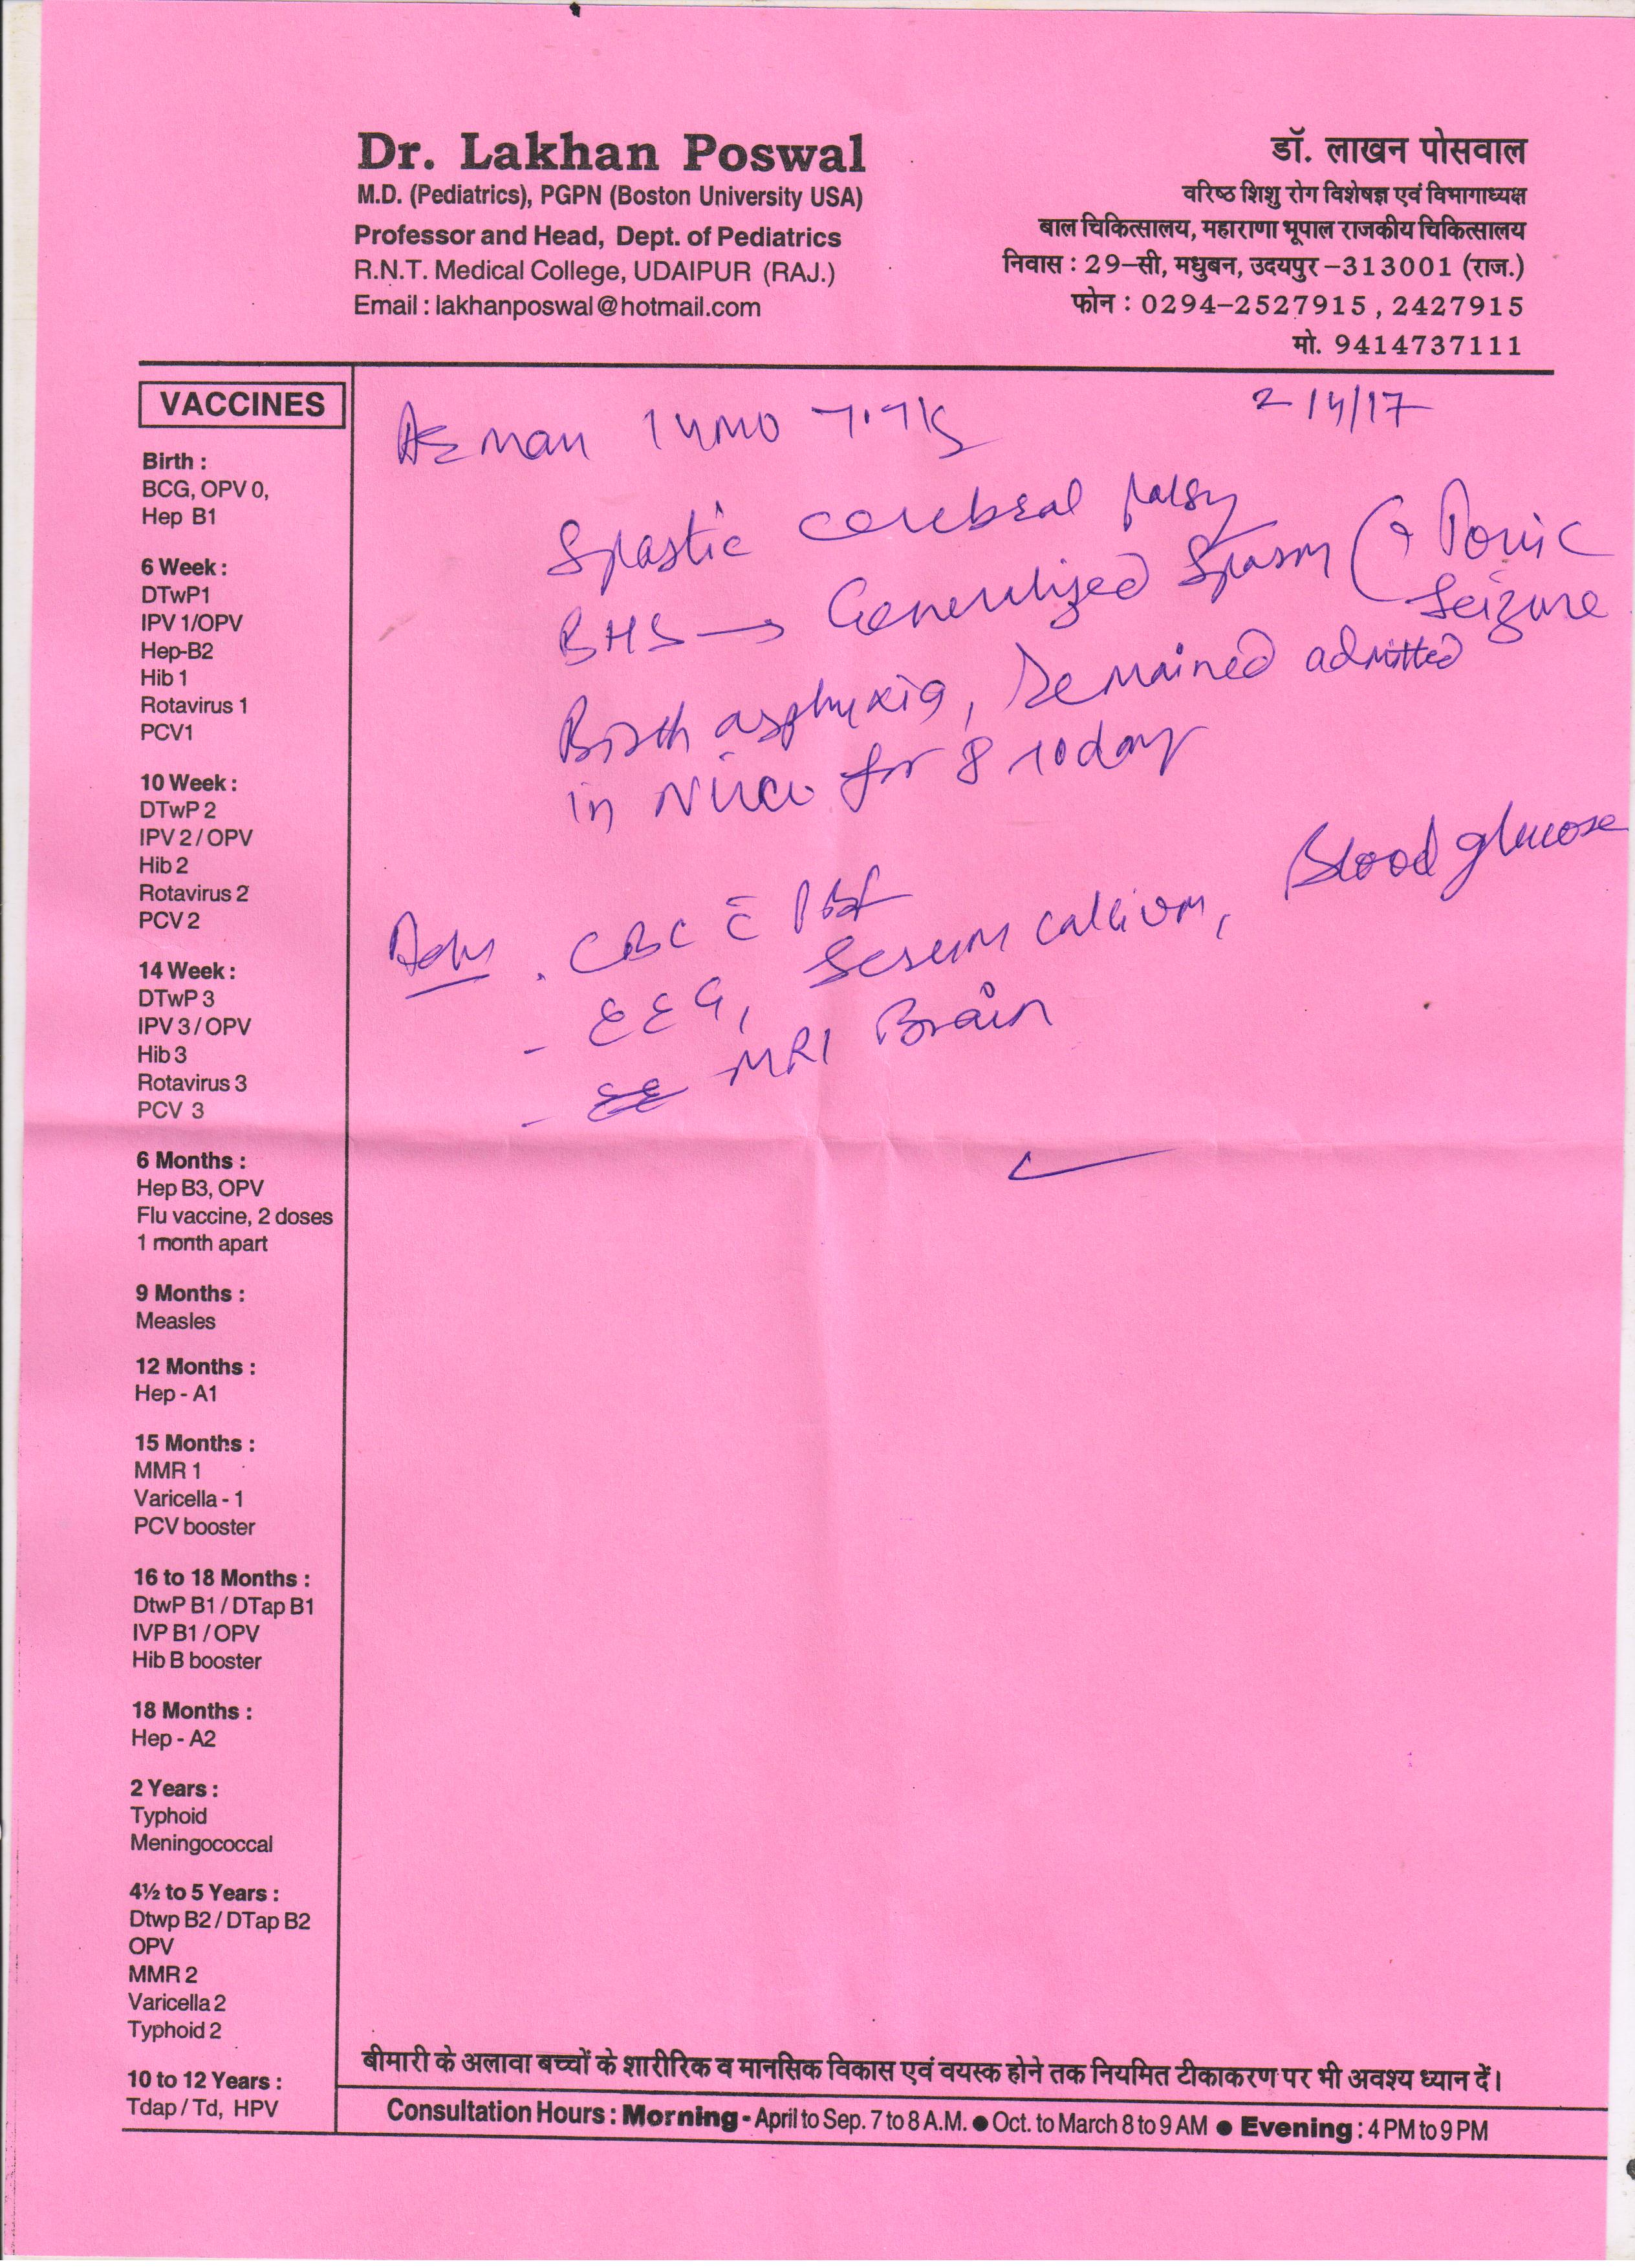 Dr. Lakhan Poswal
M.D. (Pediatrics), PGPN (Boston University USA)
Professor and Head, Dept. of Pediatrics
R.N.T. Medical College, UDAIPUR (RAJ.)
Email : lakhanposwal@hotmail.com
डॉ. लाखन पोसवाल
वरिष्ठ शिशु रोग विशेषज्ञ एवं विभागाध्यक्ष
बाल चिकित्सालय, महाराणा भूपाल राजकीय चिकित्सालय
निवास : 29-सी, मधुबन, उदयपुर-313001 (राज.)
फोन : 0294-2527915, 2427915
मो. 9414737111
VACCINES
Birth :
BCG, OPV 0,
Hep B1
6 Week :
DTwP1
IPV 1/OPV
Hep-B2
Hib 1
Rotavirus 1
PCV1
10 Week :
DTwP 2
IPV 2 / OPV
Hib 2
Rotavirus 2
PCV 2
14 Week :
DTwP 3
IPV 3 / OPV
Hib 3
Rotavirus 3
PCV 3
6 Months :
Hep B3, OPV
Flu vaccine, 2 doses
1 month apart
9 Months :
Measles
12 Months :
Hep - A1
15 Months :
MMR 1
Varicella - 1
PCV booster
16 to 18 Months :
DtwP B1 / DTap B1
IVP B1 / OPV
Hib B booster
18 Months :
Hep - A2
2 Years :
Typhoid
Meningococcal
4½ to 5 Years :
Dtwp B2 / DTap B2
OPV
MMR 2
Varicella 2
Typhoid 2
10 to 12 Years :
Tdap / Td, HPV
14MO 7.7K 2/4/17
Spastic cerebral palsy
BHS → Generalized Spasm (? Tonic Seizure
Birth asphyxia, remained admitted
in NICU for 8 10 day
. CBC c̄ PBF
- EEG, Serum calcium, Blood glucose
- MRI Brain
बीमारी के अलावा बच्चों के शारीरिक व मानसिक विकास एवं वयस्क होने तक नियमित टीकाकरण पर भी अवश्य ध्यान दें।
Consultation Hours : Morning - April to Sep. 7 to 8 A.M. ● Oct. to March 8 to 9 AM ● Evening : 4 PM to 9 PM